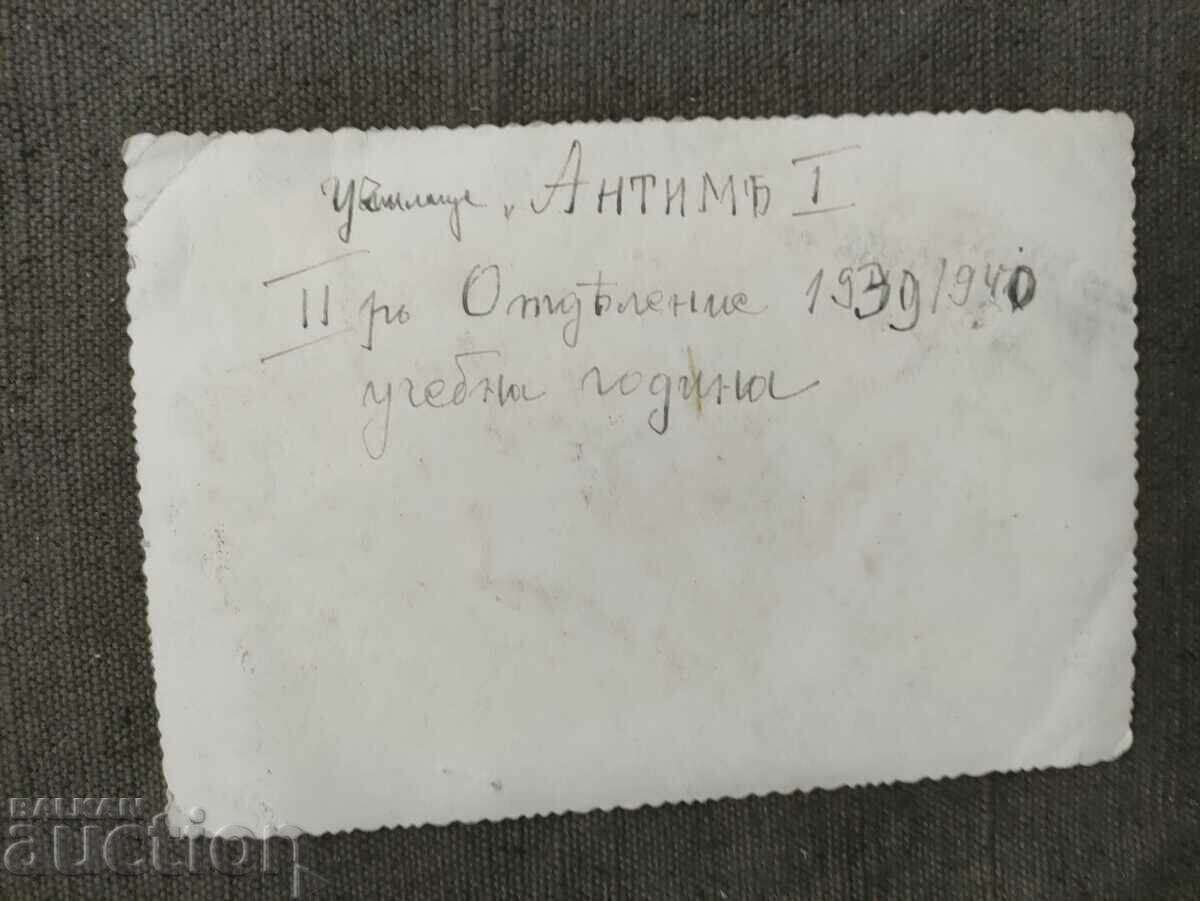 Училище „АНТИМЪ I
II ро Отдѣление 1939/940
учебна година
BALKAN
auction